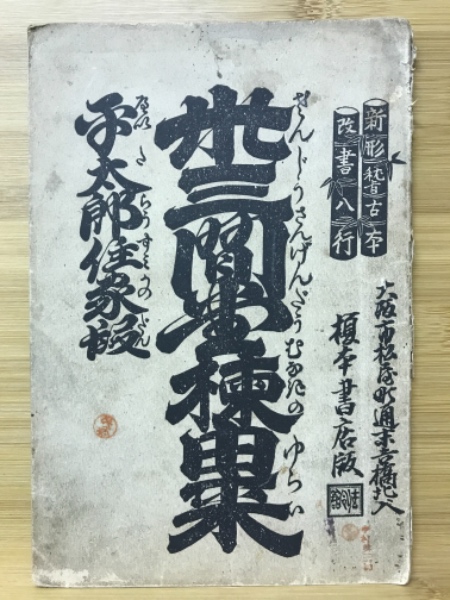 新形稽古本
改書八行
大阪市松屋町通末吉橋北入
榎本書店版
卅三間堂棟由来
さんじうさんげんだうむなぎのゆらい
平太郎住家段
へいたらうすみかのだん